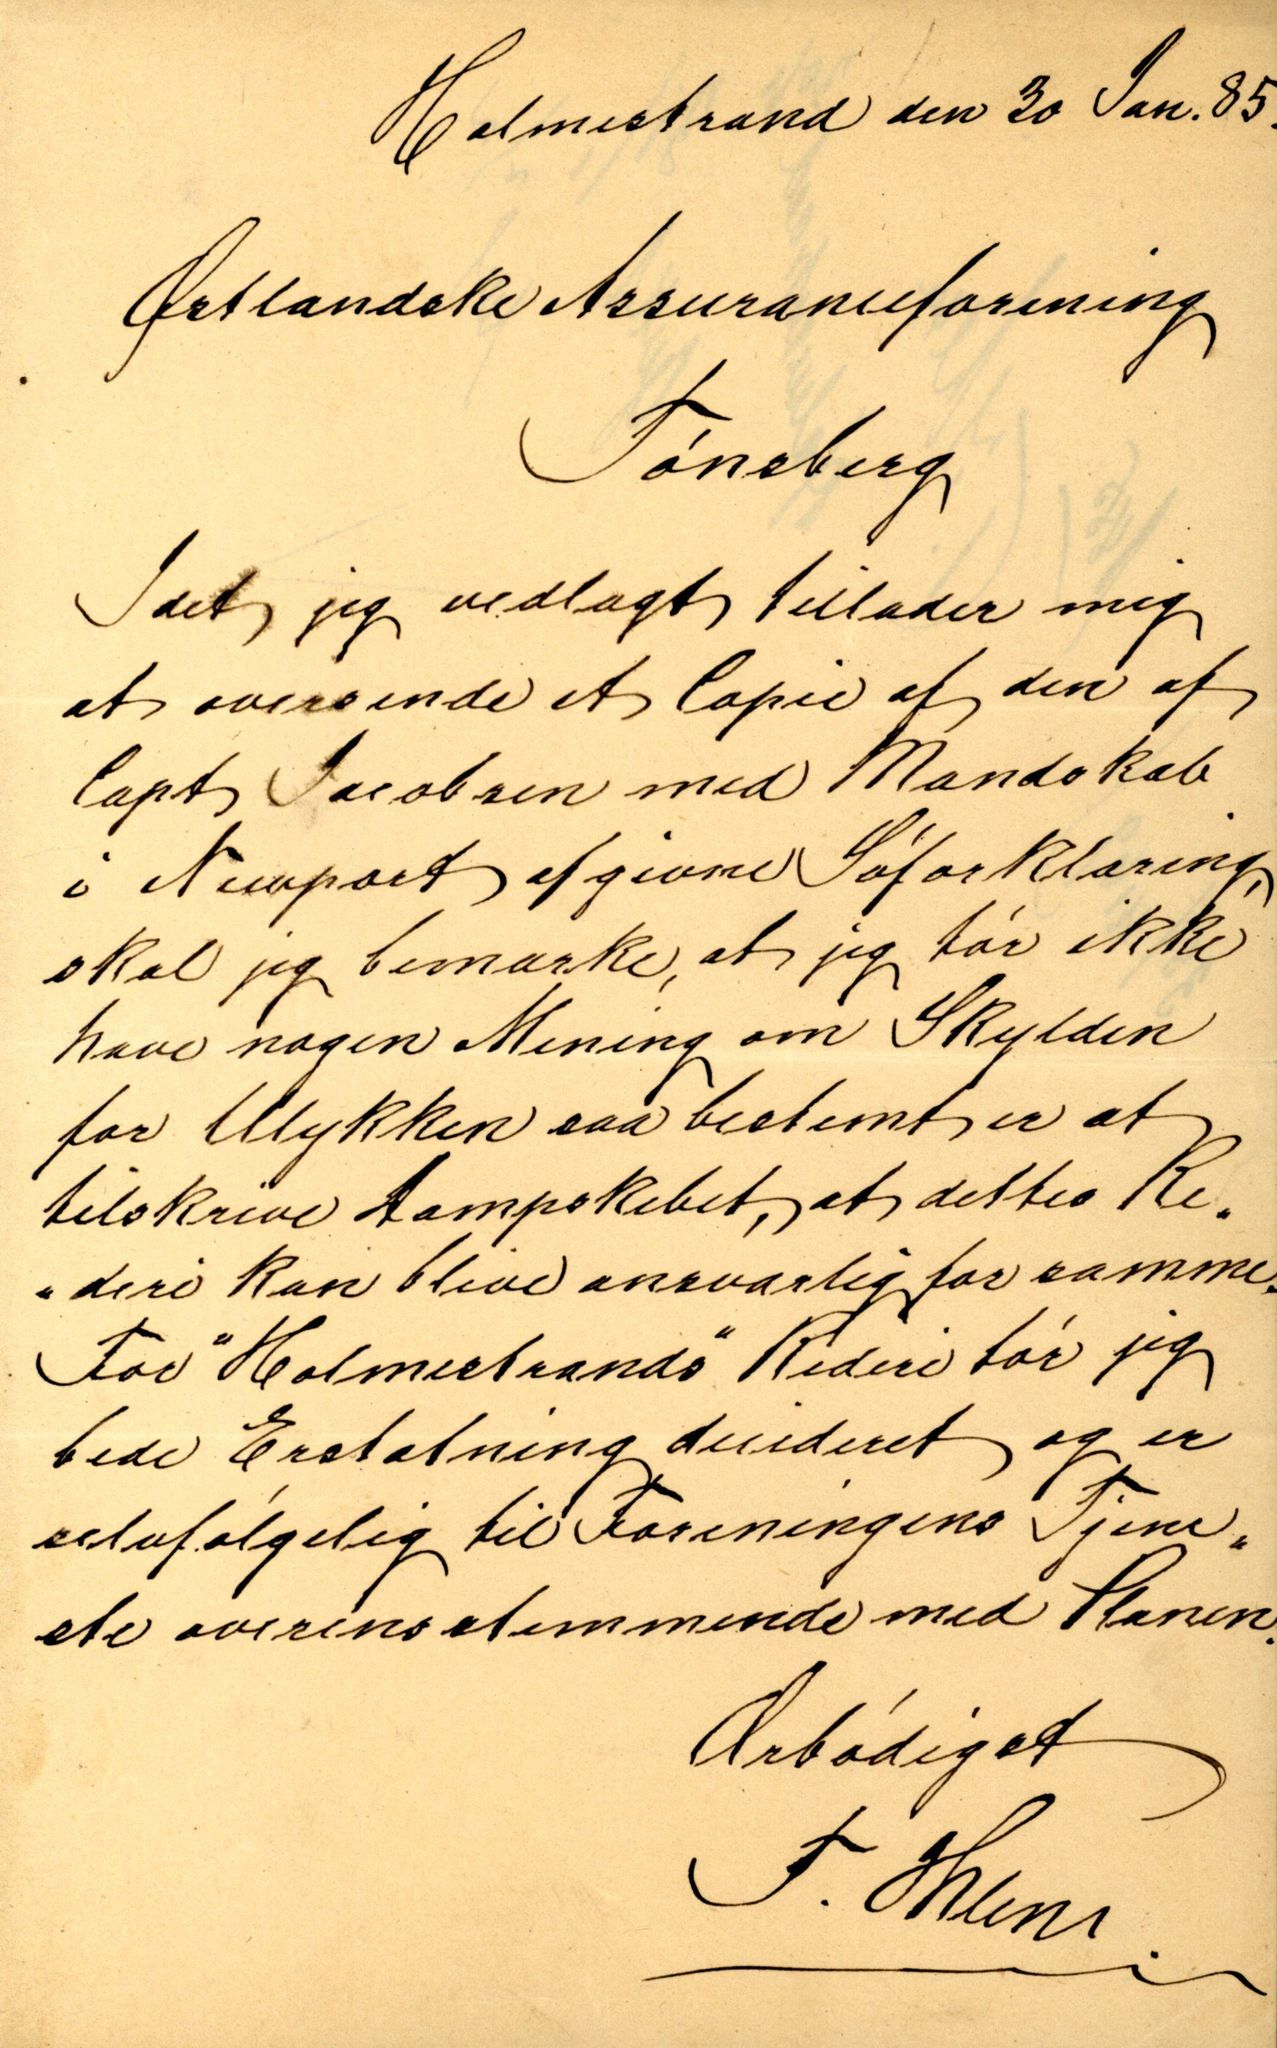 Holmestrand den 30 Jan. 85.
Østlandske Assuranceforening
Tónsberg
Idet jeg vedlagt tillader mig
at oversende et Copie af den af
Capt Jacobsen med Mandskab
i Newport afgivne Sóforklaring,
skal jeg bemærke, at jeg tór ikke
have nogen Mening om Skylden
for Ulykken saa bestemt er at
tilskrive Dampskibet, at dettes Re„
„deri kan blive ansvarlig for samme.
For "Holmestrands" Rederi tór jeg
bede Erstatning decideret og er
selvfólgelig til Foreningens Tjene„
ste overensstemmende med Planen.
Ærbódigst
F. Ihlens